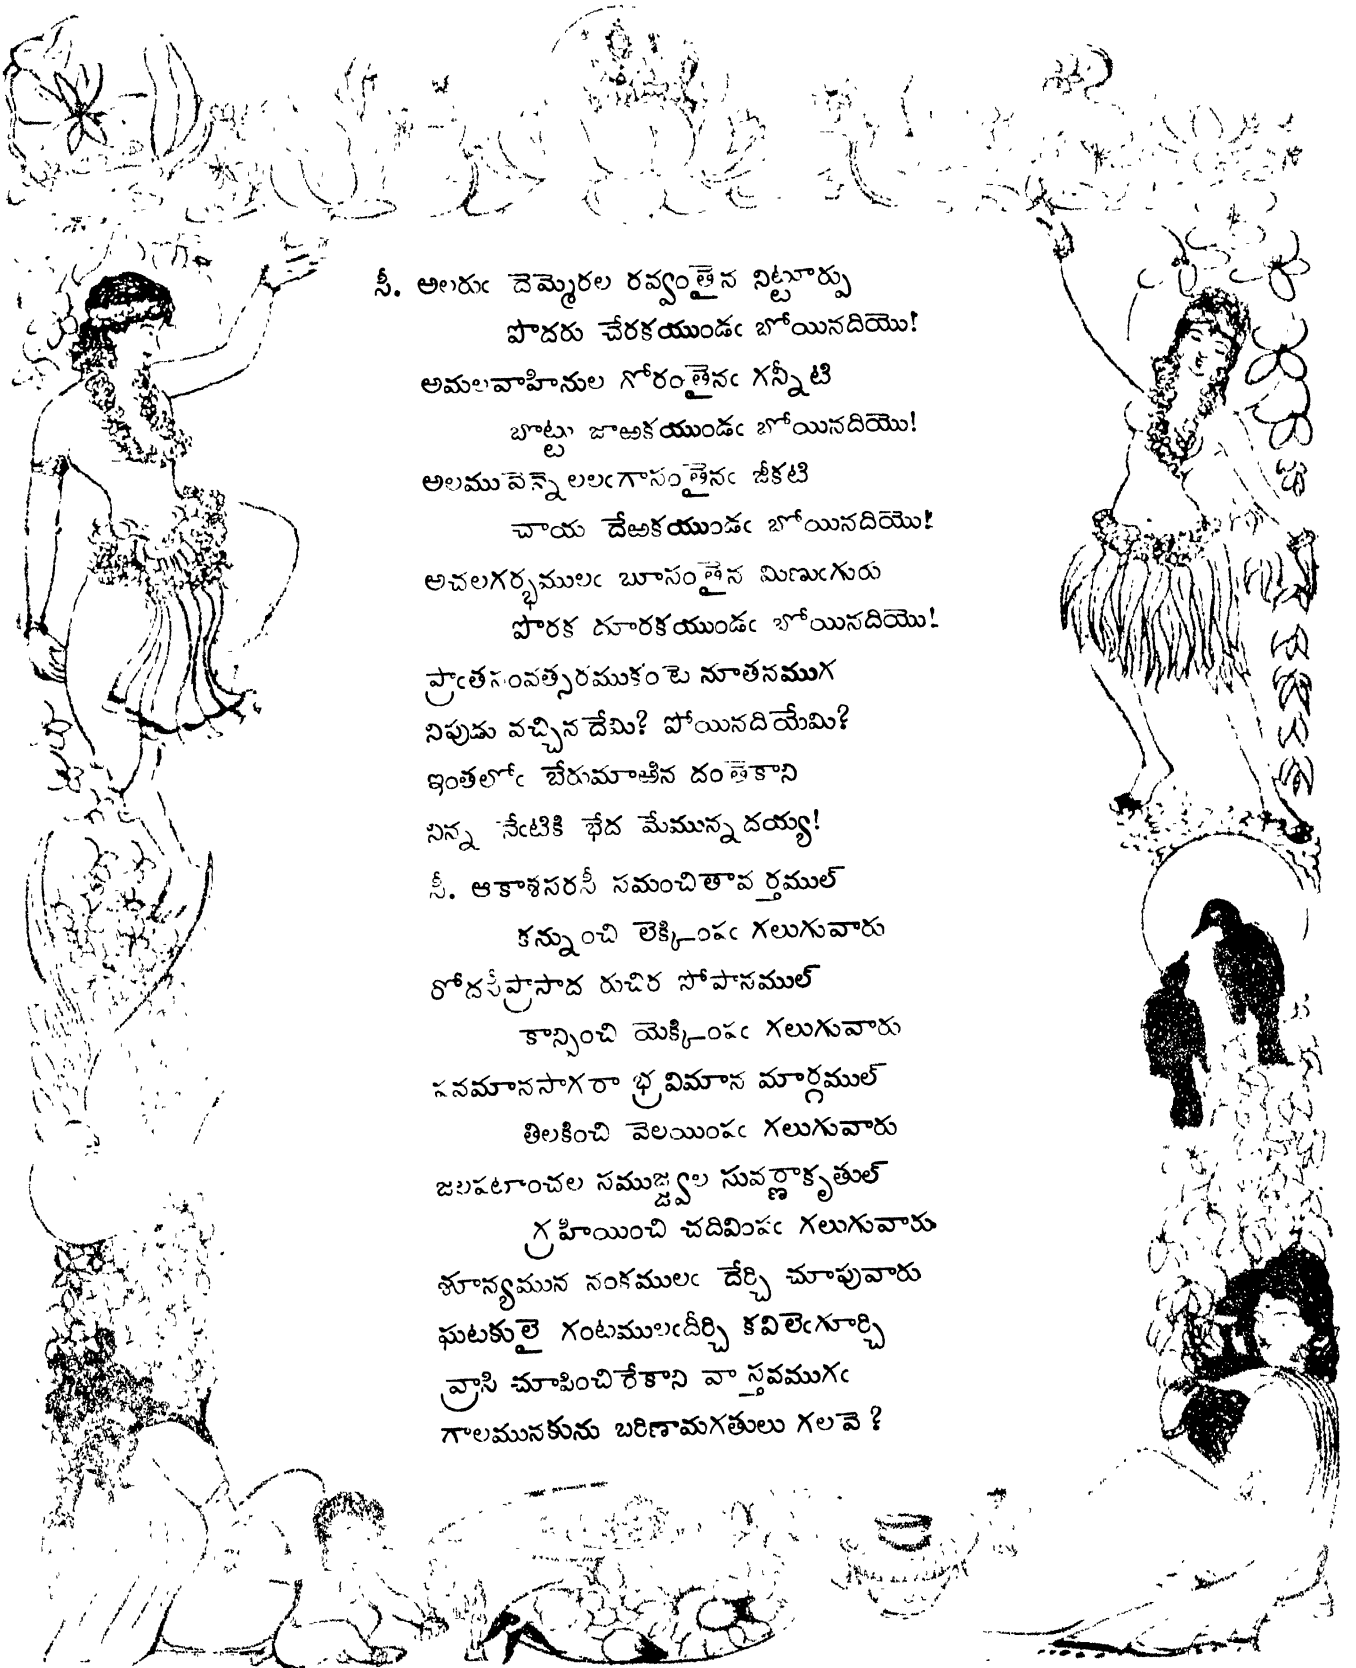 సీ. అలరుఁ దెమ్మెరల రవ్వంతైన నిట్టూర్పు
పొదరు చేరకయుండఁ బోయినదియొ!
అమలవాహినుల గోరంతైనఁ గన్నీటి
బొట్టు జాఱకయుండఁ బోయినదియొ!
అలమువెన్నెలలఁగాసంతైనఁ జీకటి
చాయ దేఱకయుండఁ బోయినదియొ!
అచలగర్భములఁ బూసంతైన మిణుఁగురు
పొరక దూరకయుండఁ బోయినదియొ!
ప్రాఁతసంవత్సరముకంటె నూతనముగ
నిపుడు వచ్చినదేమి? పోయినదియేమి?
ఇంతలోఁ బేరుమాఱిన దంతెకాని
నిన్న నేఁటికి భేద మేమున్నదయ్య!
సీ. ఆకాశసరసీ సమంచితావర్తముల్
కన్నుంచి లెక్కింపఁ గలుగువారు
రోదసీప్రాసాద రుచిర సోపానముల్
కాన్పించి యెక్కింపఁ గలుగువారు
పవమానసాగరాభ్రవిమాన మార్గముల్
తిలకించి వెలయింపఁ గలుగువారు
జలపటాంచల సముజ్జ్వల సువర్ణాకృతుల్
గ్రహియించి చదివింపఁ గలుగువారు
శూన్యమున నంకములఁ దేర్చి చూపువారు
ఘటకులై గంటములఁదీర్చి కవిలెఁగూర్చి
వ్రాసి చూపించిరేకాని వాస్తవముగఁ
గాలమునకును బరిణామగతులు గలవె?